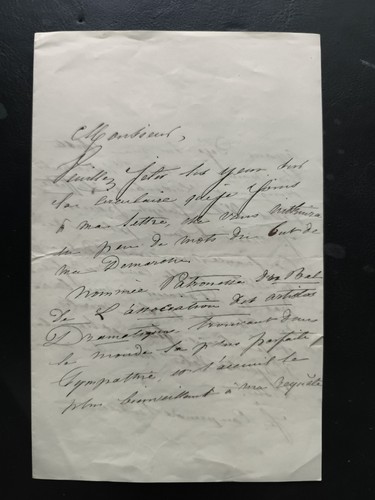 Monsieur,
Veuillez jeter les yeux sur
la circulaire que je joins
à ma lettre, elle vous
en peu de mots du but de
ma Démarche.
Nommée Patronesse du Bal
de L'association des artistes
Dramatiques trouvant dans
le monde la plus parfaite
Sympathie, et l'accueil le
plus bienveillant à ma requête